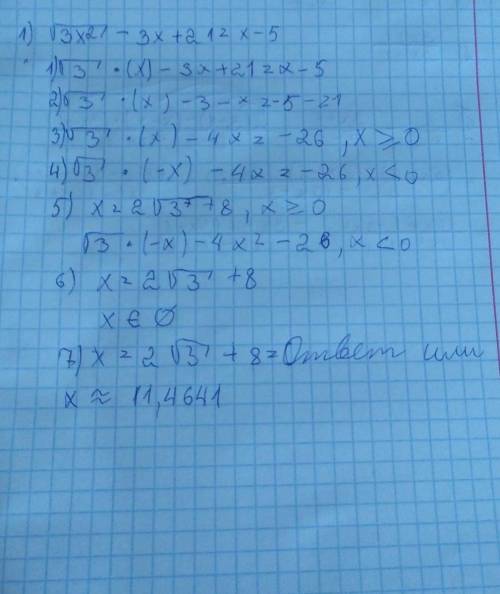 1) √3x2 - 3x + 21 = x - 5
1) √3 · (x) - 3x + 21 = x - 5
2) √3 · (x) - 3 - x = -5 - 21
3) √3 · (x) - 4x = -26, x ≥ 0
4) √3 · (-x) - 4x = -26, x < 0
5) x = 2√3 + 8, x ≥ 0
√3 · (-x) - 4x = -26, x < 0
6) x = 2√3 + 8
x ∈ Ø
7) x = 2√3 + 8 = Ответ или
x ≈ 11,4641